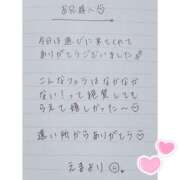 お兄様へ♡
今日は遊びに来てくれて
ありがとうございました
こんなフェラはなかなか
ない!って絶賛しても
らえて嬉しかった〜♡
遠い所からありがとう♡
えまより